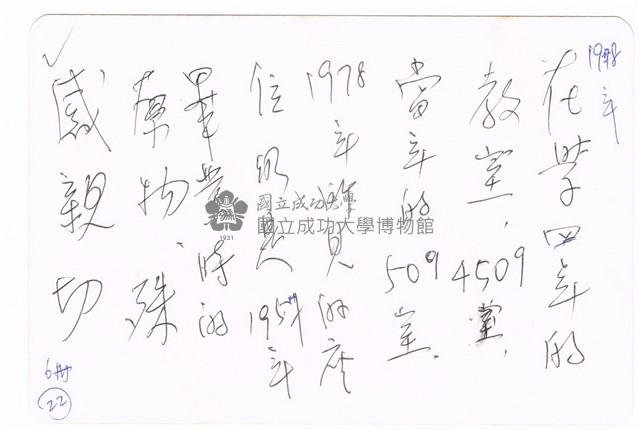 1978年
在學四年的
教室，4509室，
當年的509室。
1978年所見的座
位仍是1957年
畢業時的
原物，殊
感親切
6冊
22
國立成功大學
國立成功大學博物館
1931